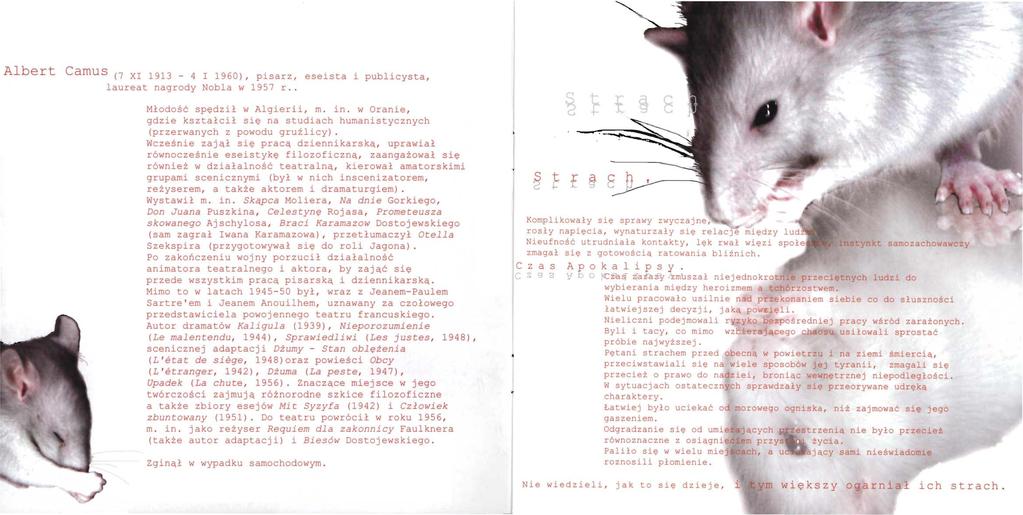 Albert Camus (7 XI 1913 - 4 I 1960), pisarz, eseista i publicysta,
laureat nagrody Nobla w 1957 r..
Młodość spędził w Algierii, m. in. w Oranie,
gdzie kształcił się na studiach humanistycznych
(przerwanych z powodu gruźlicy).
Wcześnie zajął się pracą dziennikarską, uprawiał
równocześnie eseistykę filozoficzną, zaangażował się
również w działalność teatralną, kierował amatorskimi
grupami scenicznymi (był w nich inscenizatorem,
reżyserem, a także aktorem i dramaturgiem).
Wystawił m. in. Skąpca Moliera, Na dnie Gorkiego,
Don Juana Puszkina, Celestynę Rojasa, Prometeusza
skowanego Ajschylosa, Braci Karamazow Dostojewskiego
(sam zagrał Iwana Karamazowa), przetłumaczył Otella
Szekspira (przygotowywał się do roli Jagona).
Po zakończeniu wojny porzucił działalność
animatora teatralnego i aktora, by zająć się
przede wszystkim pracą pisarską i dziennikarską.
Mimo to w latach 1945-50 był, wraz z Jeanem-Paulem
Sartre'em i Jeanem Anouilhem, uznawany za czołowego
przedstawiciela powojennego teatru francuskiego.
Autor dramatów Kaligula (1939), Nieporozumienie
(Le malentendu, 1944), Sprawiedliwi (Les justes, 1948),
scenicznej adaptacji Dżumy - Stan oblężenia
(L'état de siège, 1948)oraz powieści Obcy
(L'étranger, 1942), Dżuma (La peste, 1947),
Upadek (La chute, 1956). Znaczące miejsce w jego
twórczości zajmują różnorodne szkice filozoficzne
a także zbiory esejów Mit Syzyfa (1942) i Człowiek
zbuntowany (1951). Do teatru powrócił w roku 1956,
m. in. jako reżyser Requiem dla zakonnicy Faulknera
(także autor adaptacji) i Biesów Dostojewskiego.
Zginął w wypadku samochodowym.
Strach
Strach.
Komplikowały się sprawy zwyczajne,
rosły napięcia, wynaturzały się relacje między ludźmi.
Nieufność utrudniała kontakty, lęk rwał więzi społeczne, instynkt samozachowawczy
zmagał się z gotowością ratowania bliźnich.
Czas Apokalipsy.
Czas zarazy zmuszał niejednokrotnie przeciętnych ludzi do
wybierania między heroizmem a tchórzostwem.
Wielu pracowało usilnie nad przekonaniem siebie co do słuszności
łatwiejszej decyzji, jaką powzięli.
Nieliczni podejmowali ryzyko bezpośredniej pracy wśród zarażonych.
Byli i tacy, co mimo wzbierającego chaosu usiłowali sprostać
próbie najwyższej.
Pętani strachem przed obecną w powietrzu i na ziemi śmiercią,
przeciwstawiali się na wiele sposobów jej tyranii, zmagali się
przecież o prawo do nadziei, broniąc wewnętrznej niepodległości.
W sytuacjach ostatecznych sprawdzały się przeorywane udręką
charaktery.
Łatwiej było uciekać od morowego ogniska, niż zajmować się jego
gaszeniem.
Odgradzanie się od umierających przestrzenią nie było przecież
równoznaczne z osiągnięciem przystani życia.
Paliło się w wielu miejscach, a uciekający sami nieświadomie
roznosili płomienie.
Nie wiedzieli, jak to się dzieje, i tym większy ogarniał ich strach.